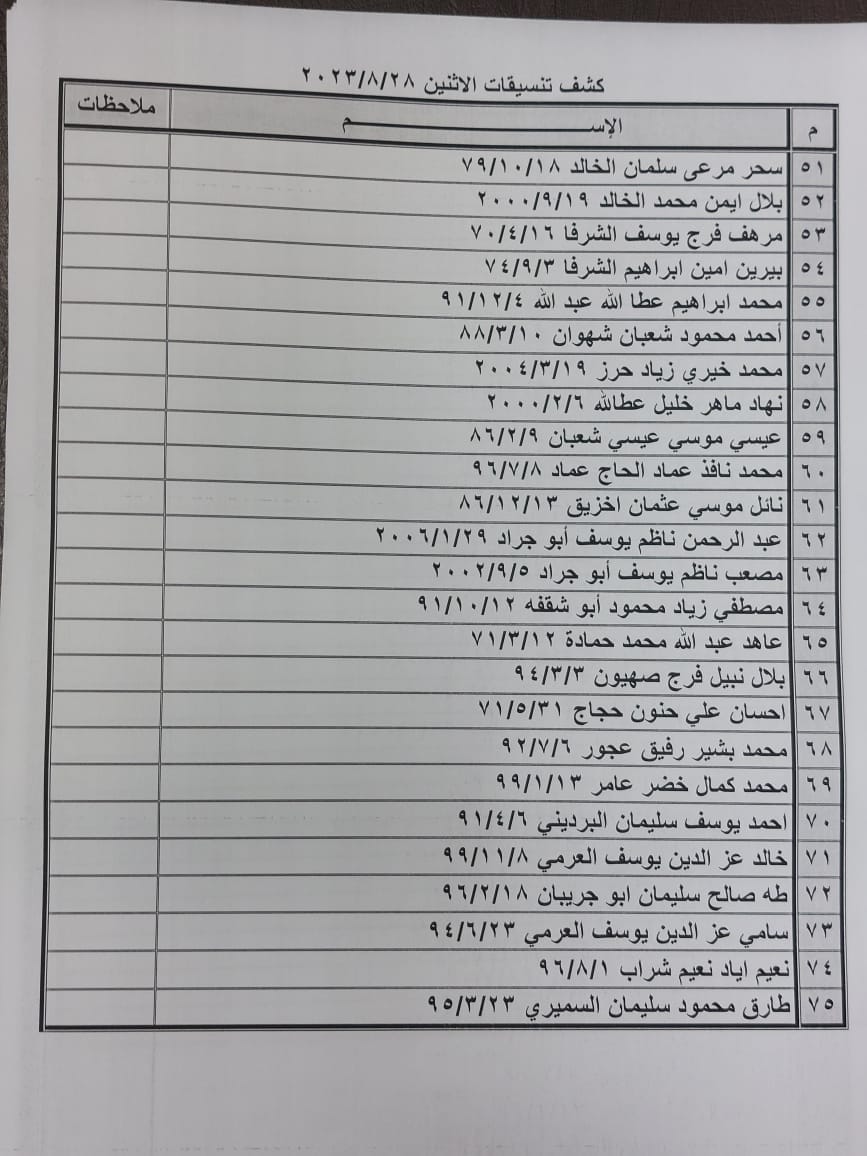 كشف تنسيقات الاثنين ٢٠٢٣/٨/٢٨
م الإســـم ملاحظات
٥١ سحر مرعى سلمان الخالد ٧٩/١٠/١٨
٥٢ بلال ايمن محمد الخالد ٢٠٠٠/٩/١٩
٥٣ مرهف فرج يوسف الشرفا ٧٠/٤/١٦
٥٤ بيرين امين ابراهيم الشرفا ٧٤/٩/٣
٥٥ محمد ابراهيم عطا الله عبد الله ٩١/١٢/٤
٥٦ أحمد محمود شعبان شهوان ٨٨/٣/١٠
٥٧ محمد خيري زياد حرز ٢٠٠٤/٣/١٩
٥٨ نهاد ماهر خليل عطالله ٢٠٠٠/٢/٦
٥٩ عيسي موسي عيسي شعبان ٨٦/٢/٩
٦٠ محمد نافذ عماد الحاج عماد ٩٦/٧/٨
٦١ نائل موسي عثمان اخزيق ٨٦/١٢/١٣
٦٢ عبد الرحمن ناظم يوسف أبو جراد ٢٠٠٦/١/٢٩
٦٣ مصعب ناظم يوسف أبو جراد ٢٠٠٢/٩/٥
٦٤ مصطفي زياد محمود أبو شقفه ٩١/١٠/١٢
٦٥ عاهد عبد الله محمد حمادة ٧١/٣/١٢
٦٦ بلال نبيل فرج صهيون ٩٤/٣/٣
٦٧ احسان علي حنون حجاج ٧١/٥/٣١
٦٨ محمد بشير رفيق عجور ٩٢/٧/٦
٦٩ محمد كمال خضر عامر ٩٩/١/١٣
٧٠ احمد يوسف سليمان البرديني ٩١/٤/٦
٧١ خالد عز الدين يوسف العرمي ٩٩/١١/٨
٧٢ طه صالح سليمان ابو جريبان ٩٦/٢/١٨
٧٣ سامي عز الدين يوسف العرمي ٩٤/٦/٢٣
٧٤ نعيم اياد نعيم شراب ٩٦/٨/١
٧٥ طارق محمود سليمان السميري ٩٥/٣/٢٣